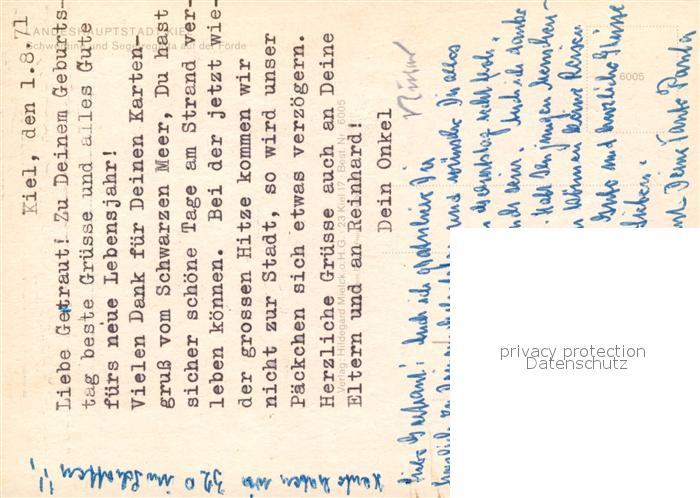 LANDESHAUPTSTADT KIEL
Schwertine und Segelregatta auf der Förde
Kiel, den 1.8.71
Liebe Getraut! Zu Deinem Geburts-
tag beste Grüsse und alles Gute
fürs neue Lebensjahr!
Vielen Dank für Deinen Karten-
gruß vom Schwarzen Meer, Du hast
sicher schöne Tage am Strand ver-
leben können. Bei der jetzt wie-
der grossen Hitze kommen wir
nicht zur Stadt, so wird unser
Päckchen sich etwas verzögern.
Herzliche Grüsse auch an Deine
Eltern und an Reinhard!
Dein Onkel
Verlag: Hildegard Mielck o.H.G. 23 Kiel 17 Best. Nr. 6005
6005
Auch ich gratuliere Dir
und wünsche Dir alles
nicht
Auch ich danke
jungen Menschen
können keine Reisen
Gute und herzliche Grüsse
Deine Tante
heute haben wir 32° im Schatten!!
privacy protection
Datenschutz